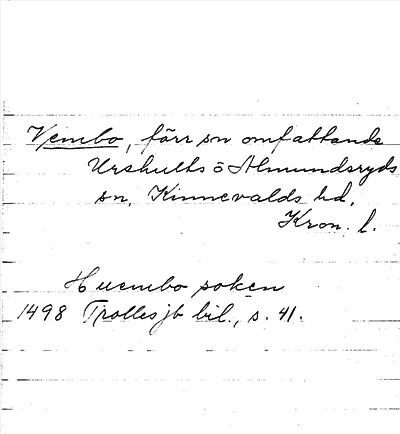 Vembo, förr sn omfattande
Urshults o Almundsryds
sn, Kinnevalds hd,
Kron. l.
Huembo soken
1498 Trolles jb bil., s. 41.